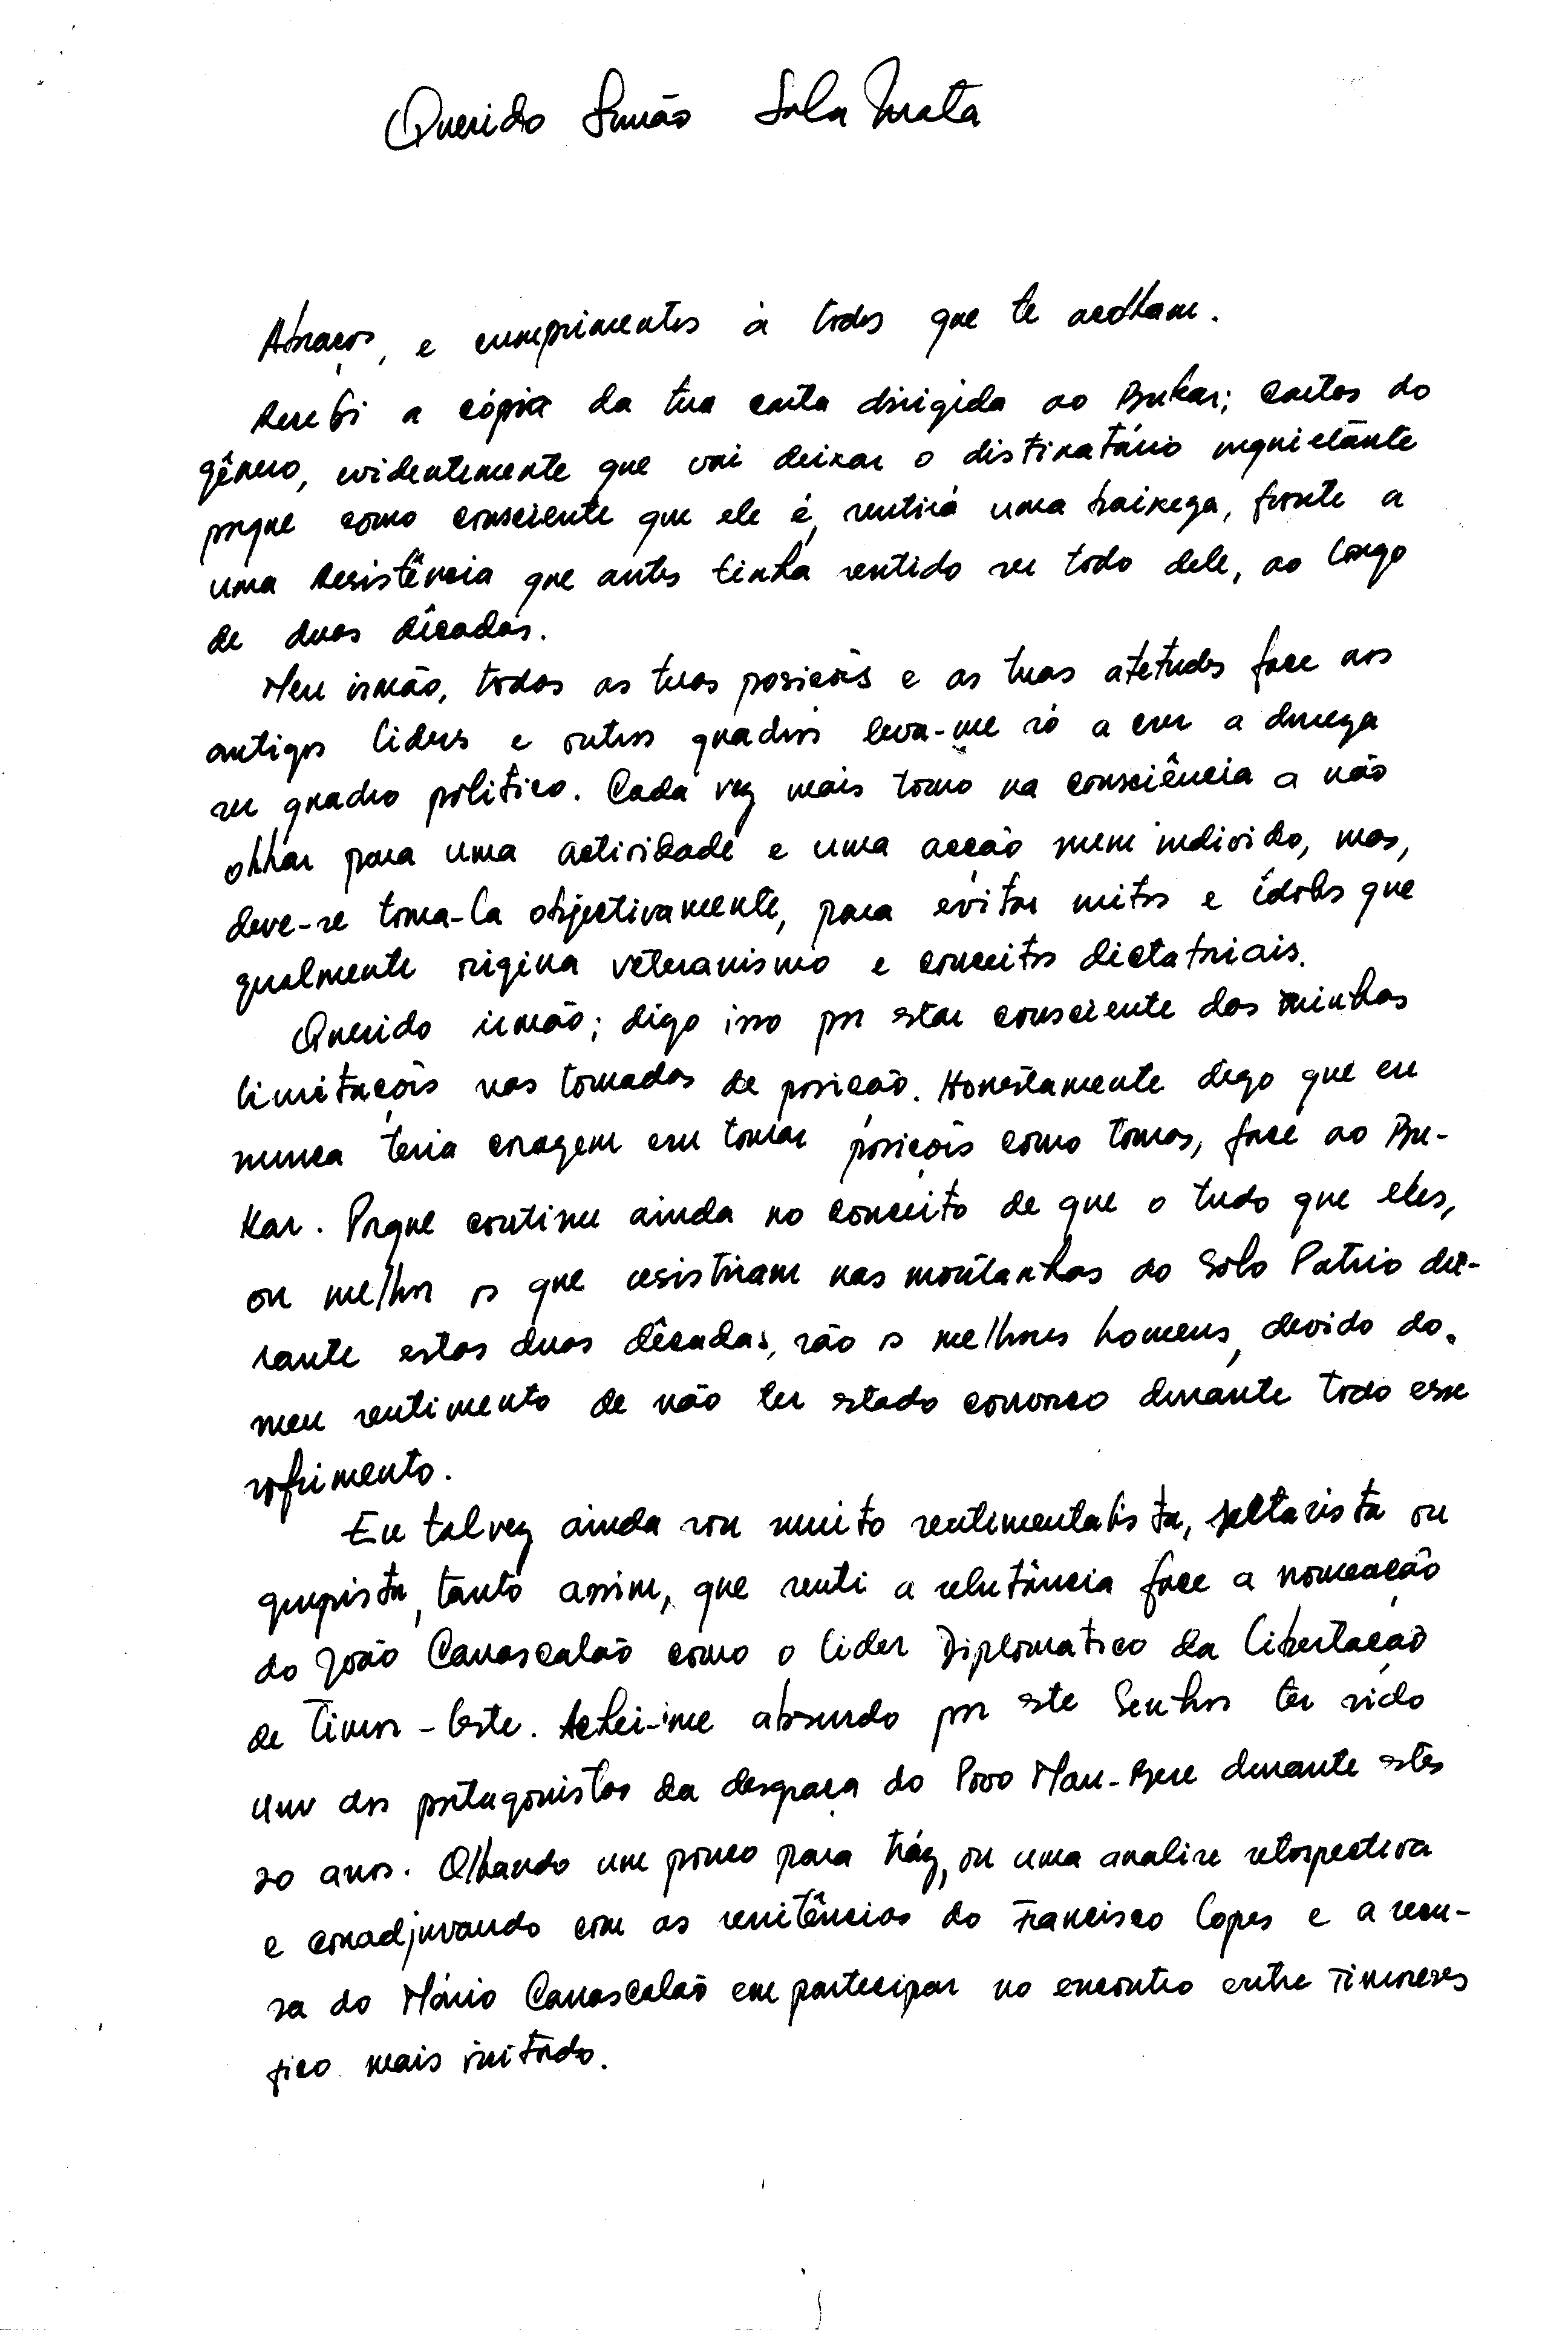 Querido Simão Sola Mata
Abraços, e cumprimentos à todos que te acolham.
Recebi a cópia da tua carta dirigida ao Bukar; cartas do
gênero, evidentemente que vai deixar o distinatário inquietante
porque como consciente que ele é, sentirá uma baixeza, fronte a
uma Resistência que antes tinha sentido ser todo dele, ao longo
de duas dêcadas.
Meu irmão, todas as tuas posições e as tuas atetudes face aos
antigos lideres e outros quadros leva-me só a crer a dureza
ser quadro politico. Cada vez mais tomo na consciência a não
olhar para uma actividade e uma acção num individo, mas,
deve-se toma-la objectivamente, para evitar mitos e ídolos que
gualmente origina veteranismo e conceitos dictatoriais.
Querido irmão; digo isso por estar consciente das minhas
limitações nas tomadas de posição. Honestamente digo que eu
nunca teria coragem em tomar posições como tomas, face ao Bu-
kar. Porque continu ainda no conceito de que o tudo que eles,
ou melhor os que resistiram nas montanhas do Solo Patrio du-
rante estas duas dêcadas, são os melhores homens, devido do
meu sentimento de não ter estado conosco durante todo esse
sofrimento.
Eu talvez ainda sou muito sentimentalista, seltarista ou
grupista, tanto assim, que senti a relutância face a nomeação
do João Carrascalão como o lider Diplomatico da Libertação
de Timor-Leste. Achei-me absurdo por este Senhor ter sido
um dos protagonistas da desgraça do Povo Mau-Bere durante estes
20 anos. Olhando um pouco para tráz, ou uma analise retospectiva
e coadjuvando com as renitências do Francisco Lopes e a recu-
sa do Mário Carrascalão em partecipar no encontro entre Timoreses
fico mais irritado.